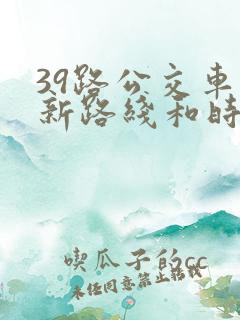 39路公交车
新路线和时
吃瓜子的cc
未经同意禁止转载